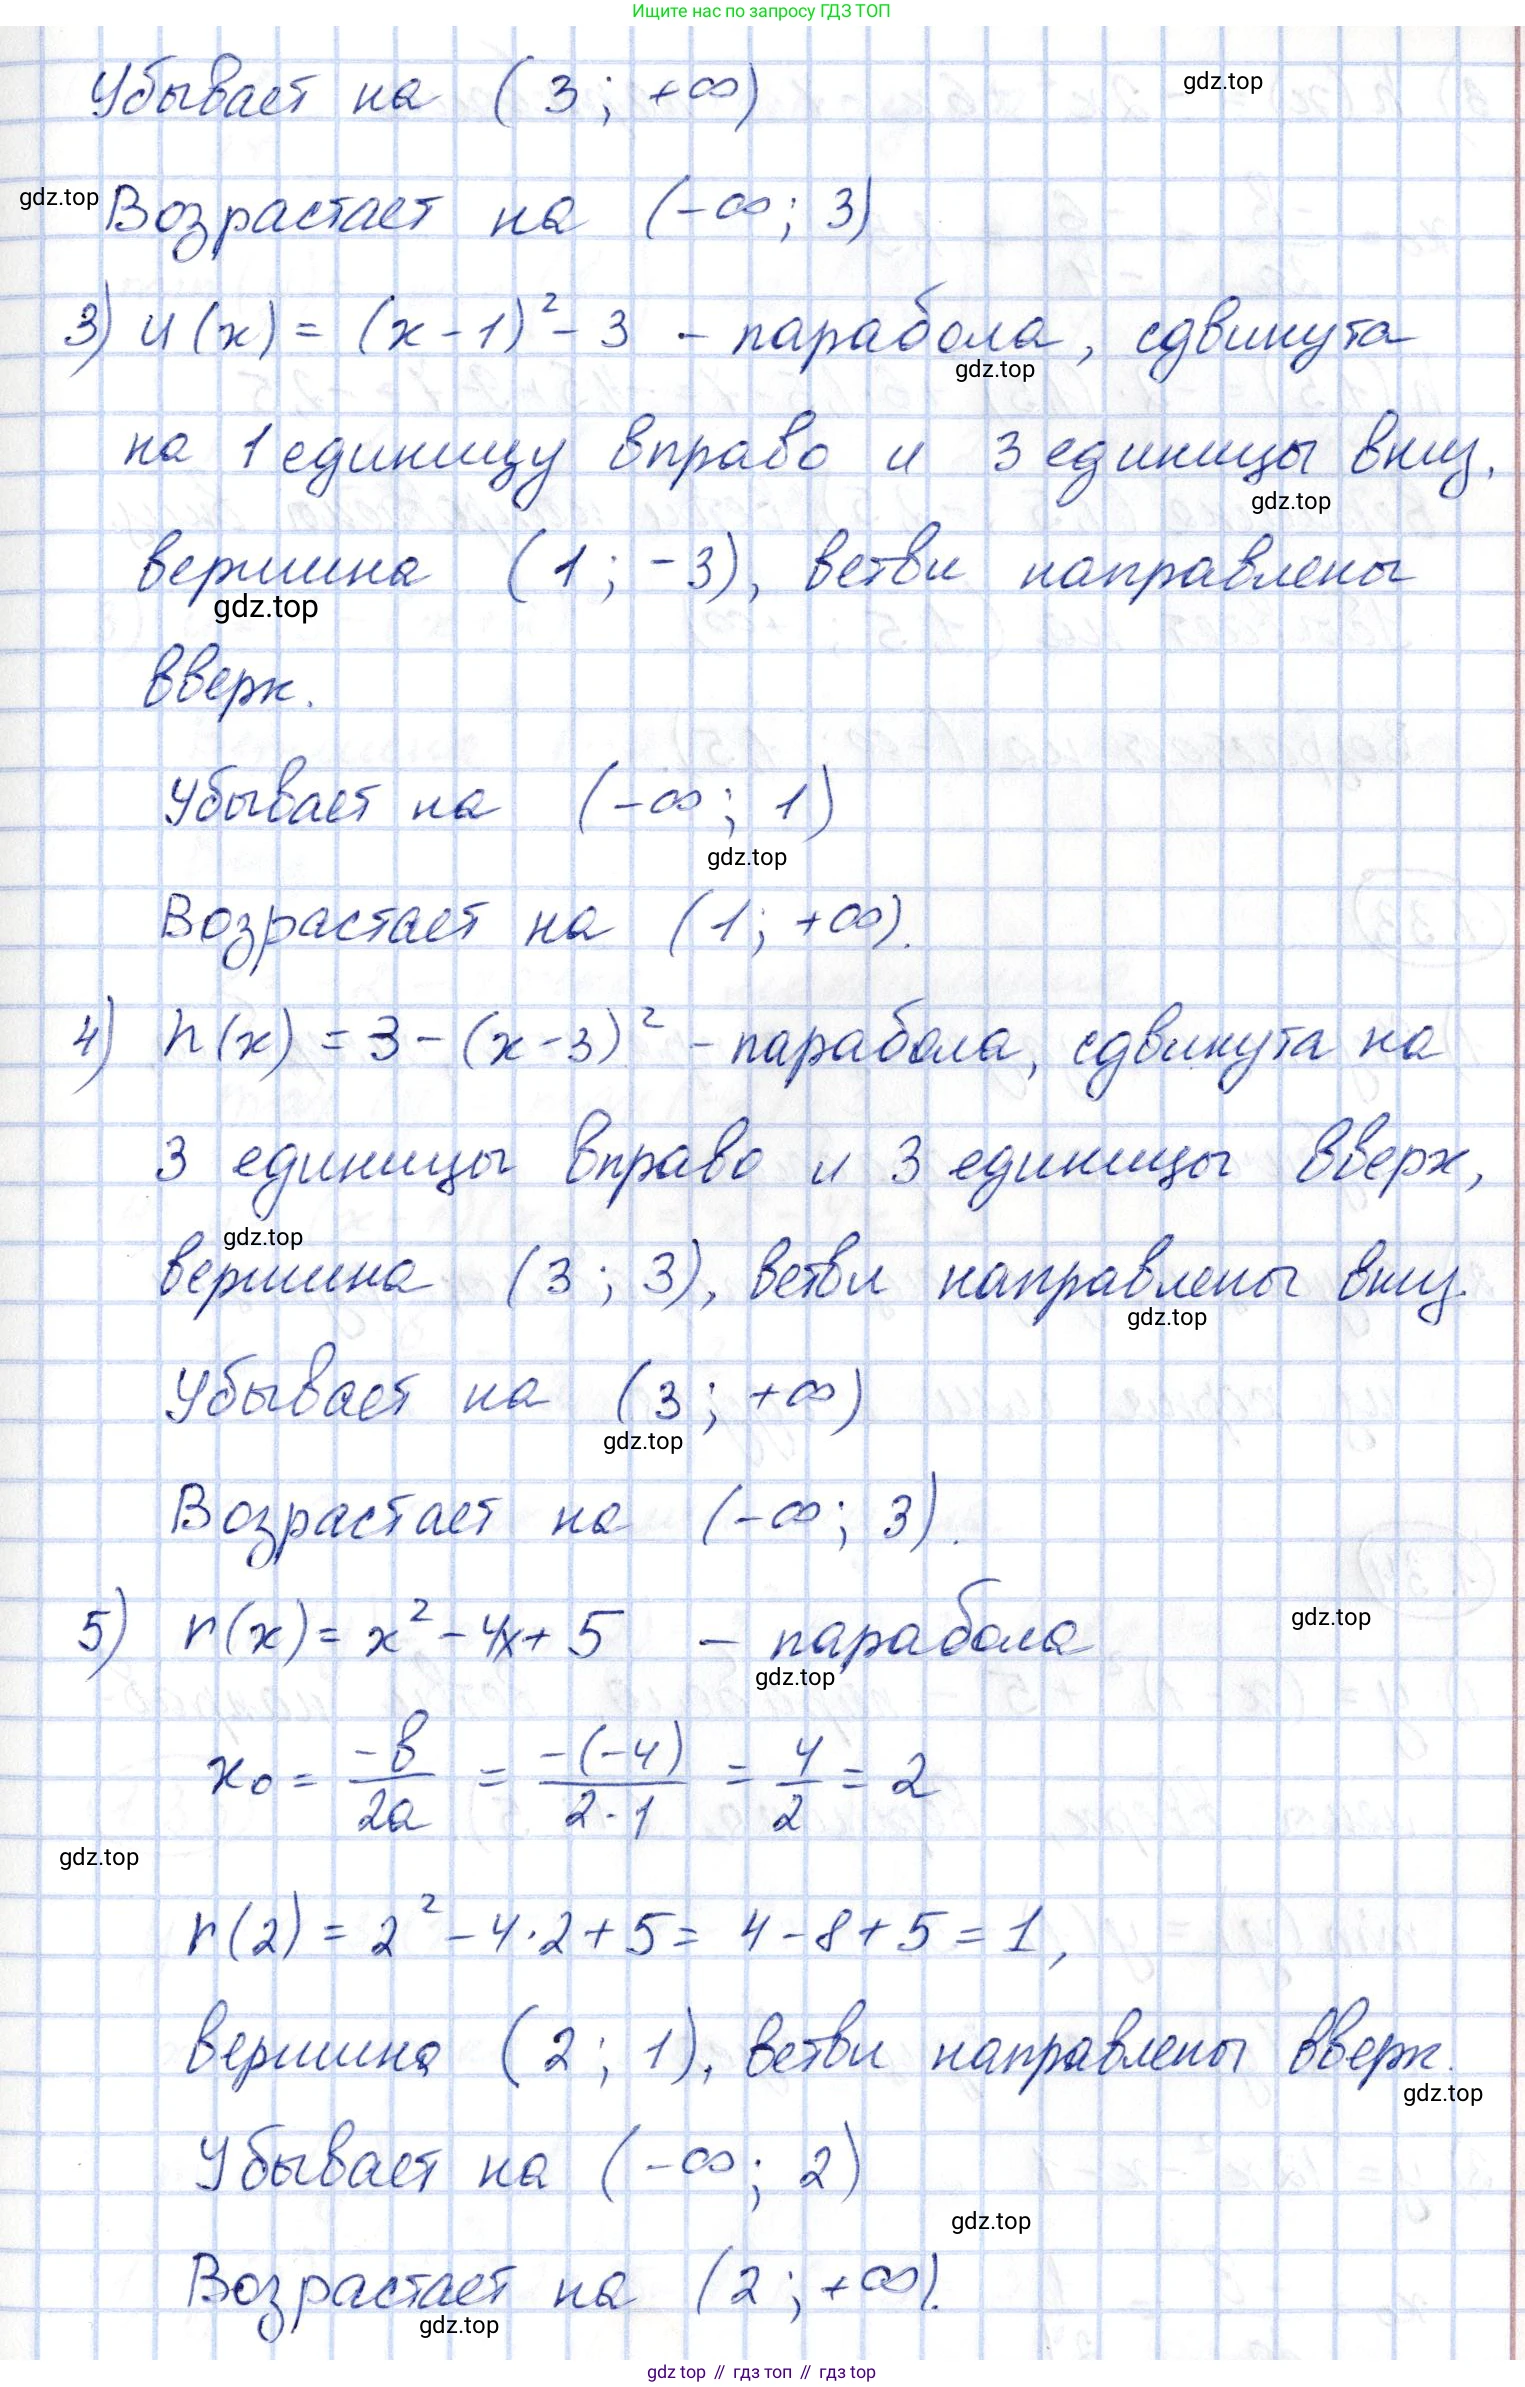 Ищите нас по запросу ГДЗ ТОП
Убывает на (3; +∞)
gdz.top
gdz.top
Возрастает на (-∞; 3)
3) u(x) = (x-1)² - 3 - парабола, сдвинута
gdz.top
на 1 единицу вправо и 3 единицы вниз,
gdz.top
вершина (1; -3), ветви направлены
gdz.top
вверх.
Убывает на (-∞; 1)
gdz.top
Возрастает на (1; +∞).
4) h(x) = 3 - (x-3)² - парабола, сдвинута на
3 единицы вправо и 3 единицы вверх,
gdz.top
вершина (3; 3), ветви направлены вниз.
gdz.top
Убывает на (3; +∞)
gdz.top
Возрастает на (-∞; 3).
5) r(x) = x² - 4x + 5 - парабола
gdz.top
gdz.top
x₀ = -b/2a = -(-4)/2·1 = 4/2 = 2
gdz.top
r(2) = 2² - 4·2 + 5 = 4 - 8 + 5 = 1,
вершина (2; 1), ветви направлены вверх.
gdz.top
Убывает на (-∞; 2)
gdz.top
Возрастает на (2; +∞).
gdz.top
gdz top // гдз топ // гдз top